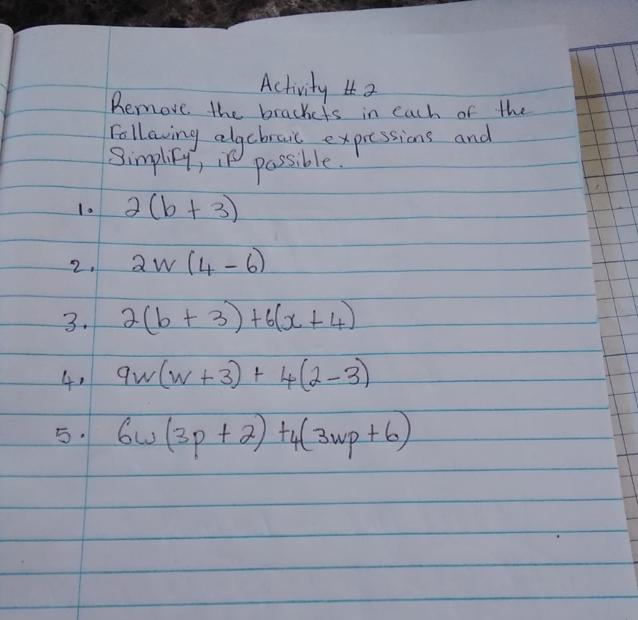 Activity # 2
Remove the brackets in each of the
following algebraic expressions and
Simplify, if possible.
1. 2(b + 3)
2. 2w (4 - 6)
3. 2(b + 3) + 6(x + 4)
4. 9w(w + 3) + 4(2 - 3)
5. 6w (3p + 2) + 4(3wp + 6)